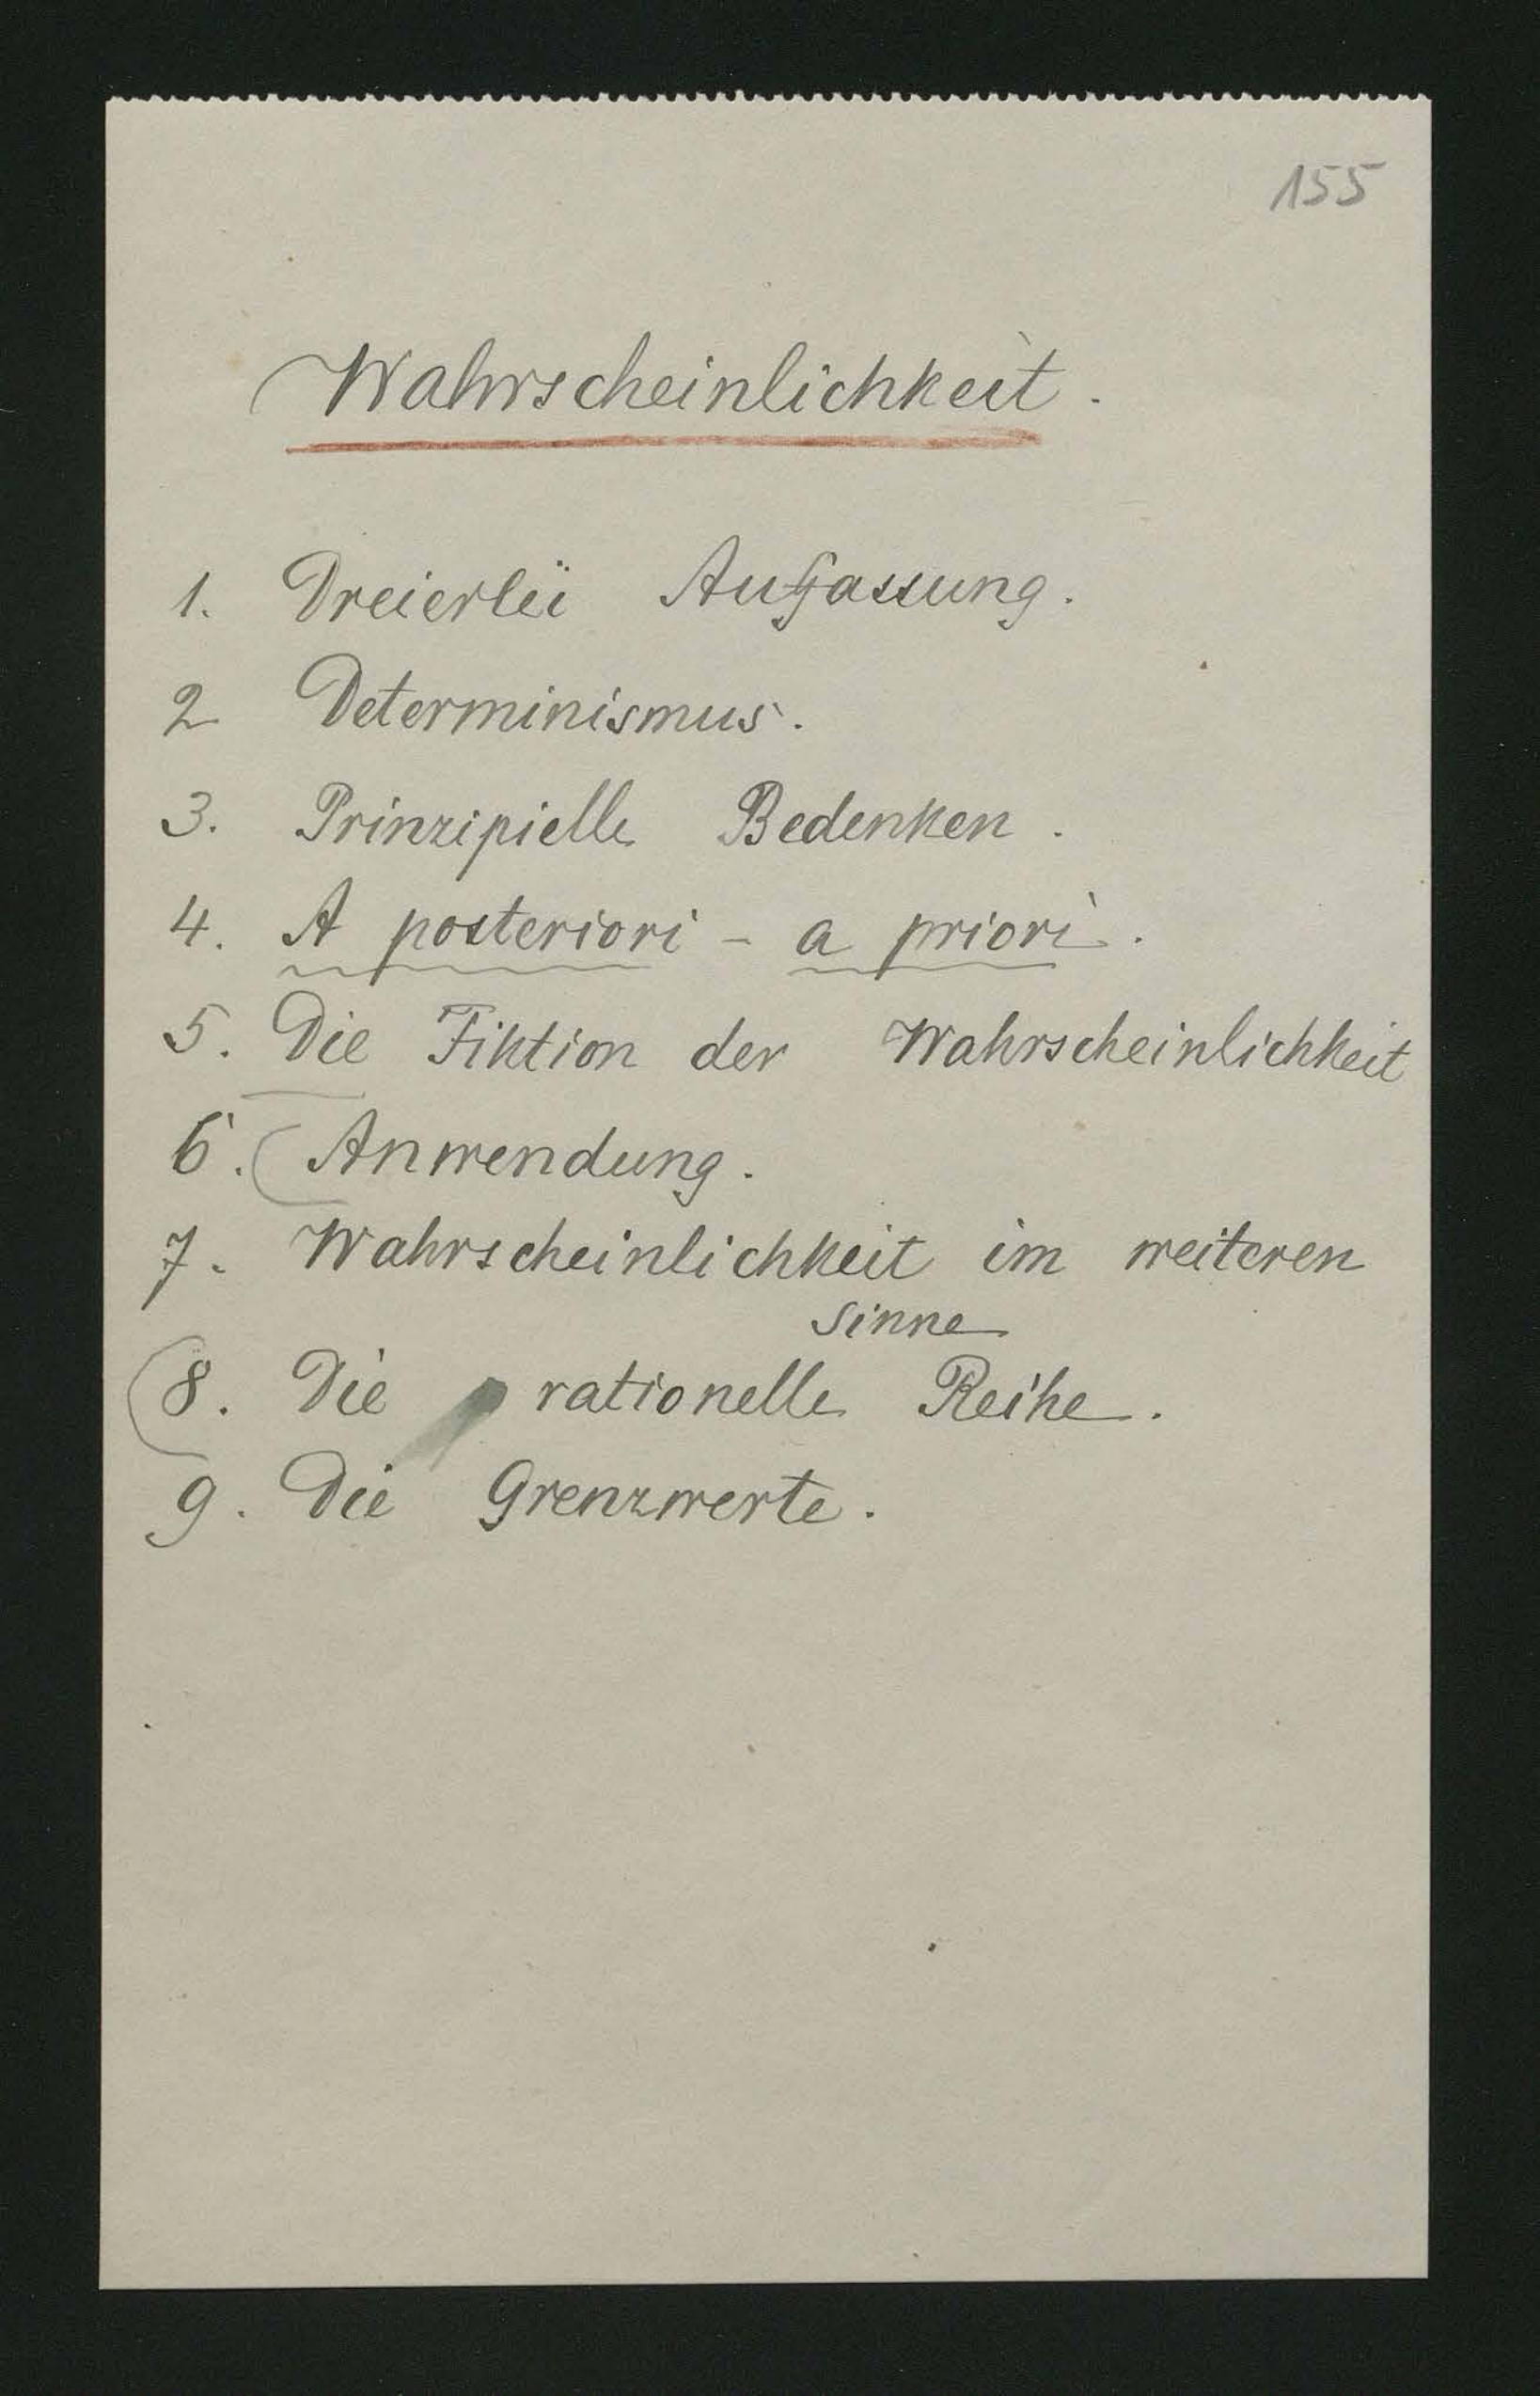 155
Wahrscheinlichkeit.
1. Dreierlei Auffassung.
2 Determinismus.
3. Prinzipielle Bedenken.
4. A posteriori - a priori.
5. Die Fiktion der Wahrscheinlichkeit
6. (Anwendung.
7. Wahrscheinlichkeit im weiteren
Sinne
(8. Die rationelle Reihe.
9. Die Grenzwerte.